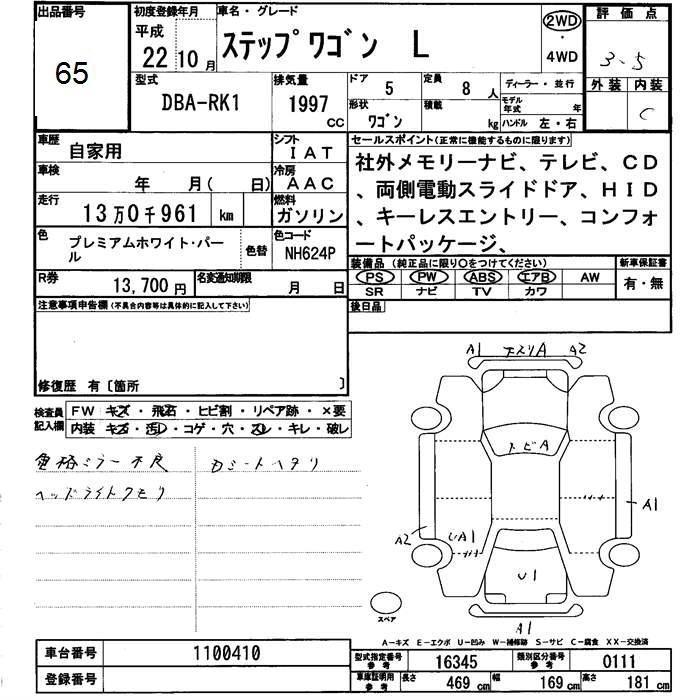 出品番号
65
初度登録年月
平成
22 10 月
車名・グレード
ステップワゴン L
2WD
・
4WD
評価点
3.5
外装 内装
C
型式
DBA-RK1
排気量
1997 CC
ドア
5
定員
8 人
形状
ワゴン
積載
kg
ディーラー・並行
モデル年式 年
ハンドル 左・右
車歴
自家用
シフト
IAT
車検
年 月( 日)
冷房
AAC
走行
13万0千961 km
燃料
ガソリン
色
プレミアムホワイト・パール
色替
色コード
NH624P
R券
13,700 円
名変通知期限
月 日
セールスポイント(正常に機能するものに限ります)
社外メモリーナビ、テレビ、CD
、両側電動スライドドア、HID
、キーレスエントリー、コンフォ
ートパッケージ、
装備品(純正品に限り○をつけてください)
新車保証書
PS PW ABS エアB AW
SR ナビ TV カワ
有・無
後日品
注意事項申告欄(不具合内容等は具体的に記入して下さい)
修復歴 有〔箇所 〕
検査員記入欄
FW キズ・飛石・ヒビ割・リペア跡・×要
内装 キズ・汚レ・コゲ・穴・スレ・キレ・破レ
ミラー不良
シートヘタリ
ヘッドライトクモリ
A1
A
A2
トビA
A1
A2
UA1
U1
A1
スペア
A－キズ E－エクボ U－凹み W－補修跡 S－サビ C－腐食 XX－交換済
車台番号
1100410
登録番号
型式指定番号
参考
16345
類別区分番号
参考
0111
車庫証明用
参考
長さ 469 cm 幅 169 cm 高さ 181 cm